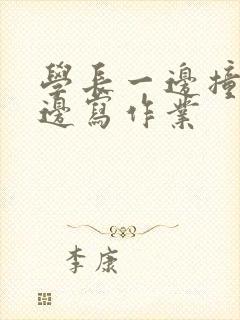 學長一邊撞
邊寫作業
李康